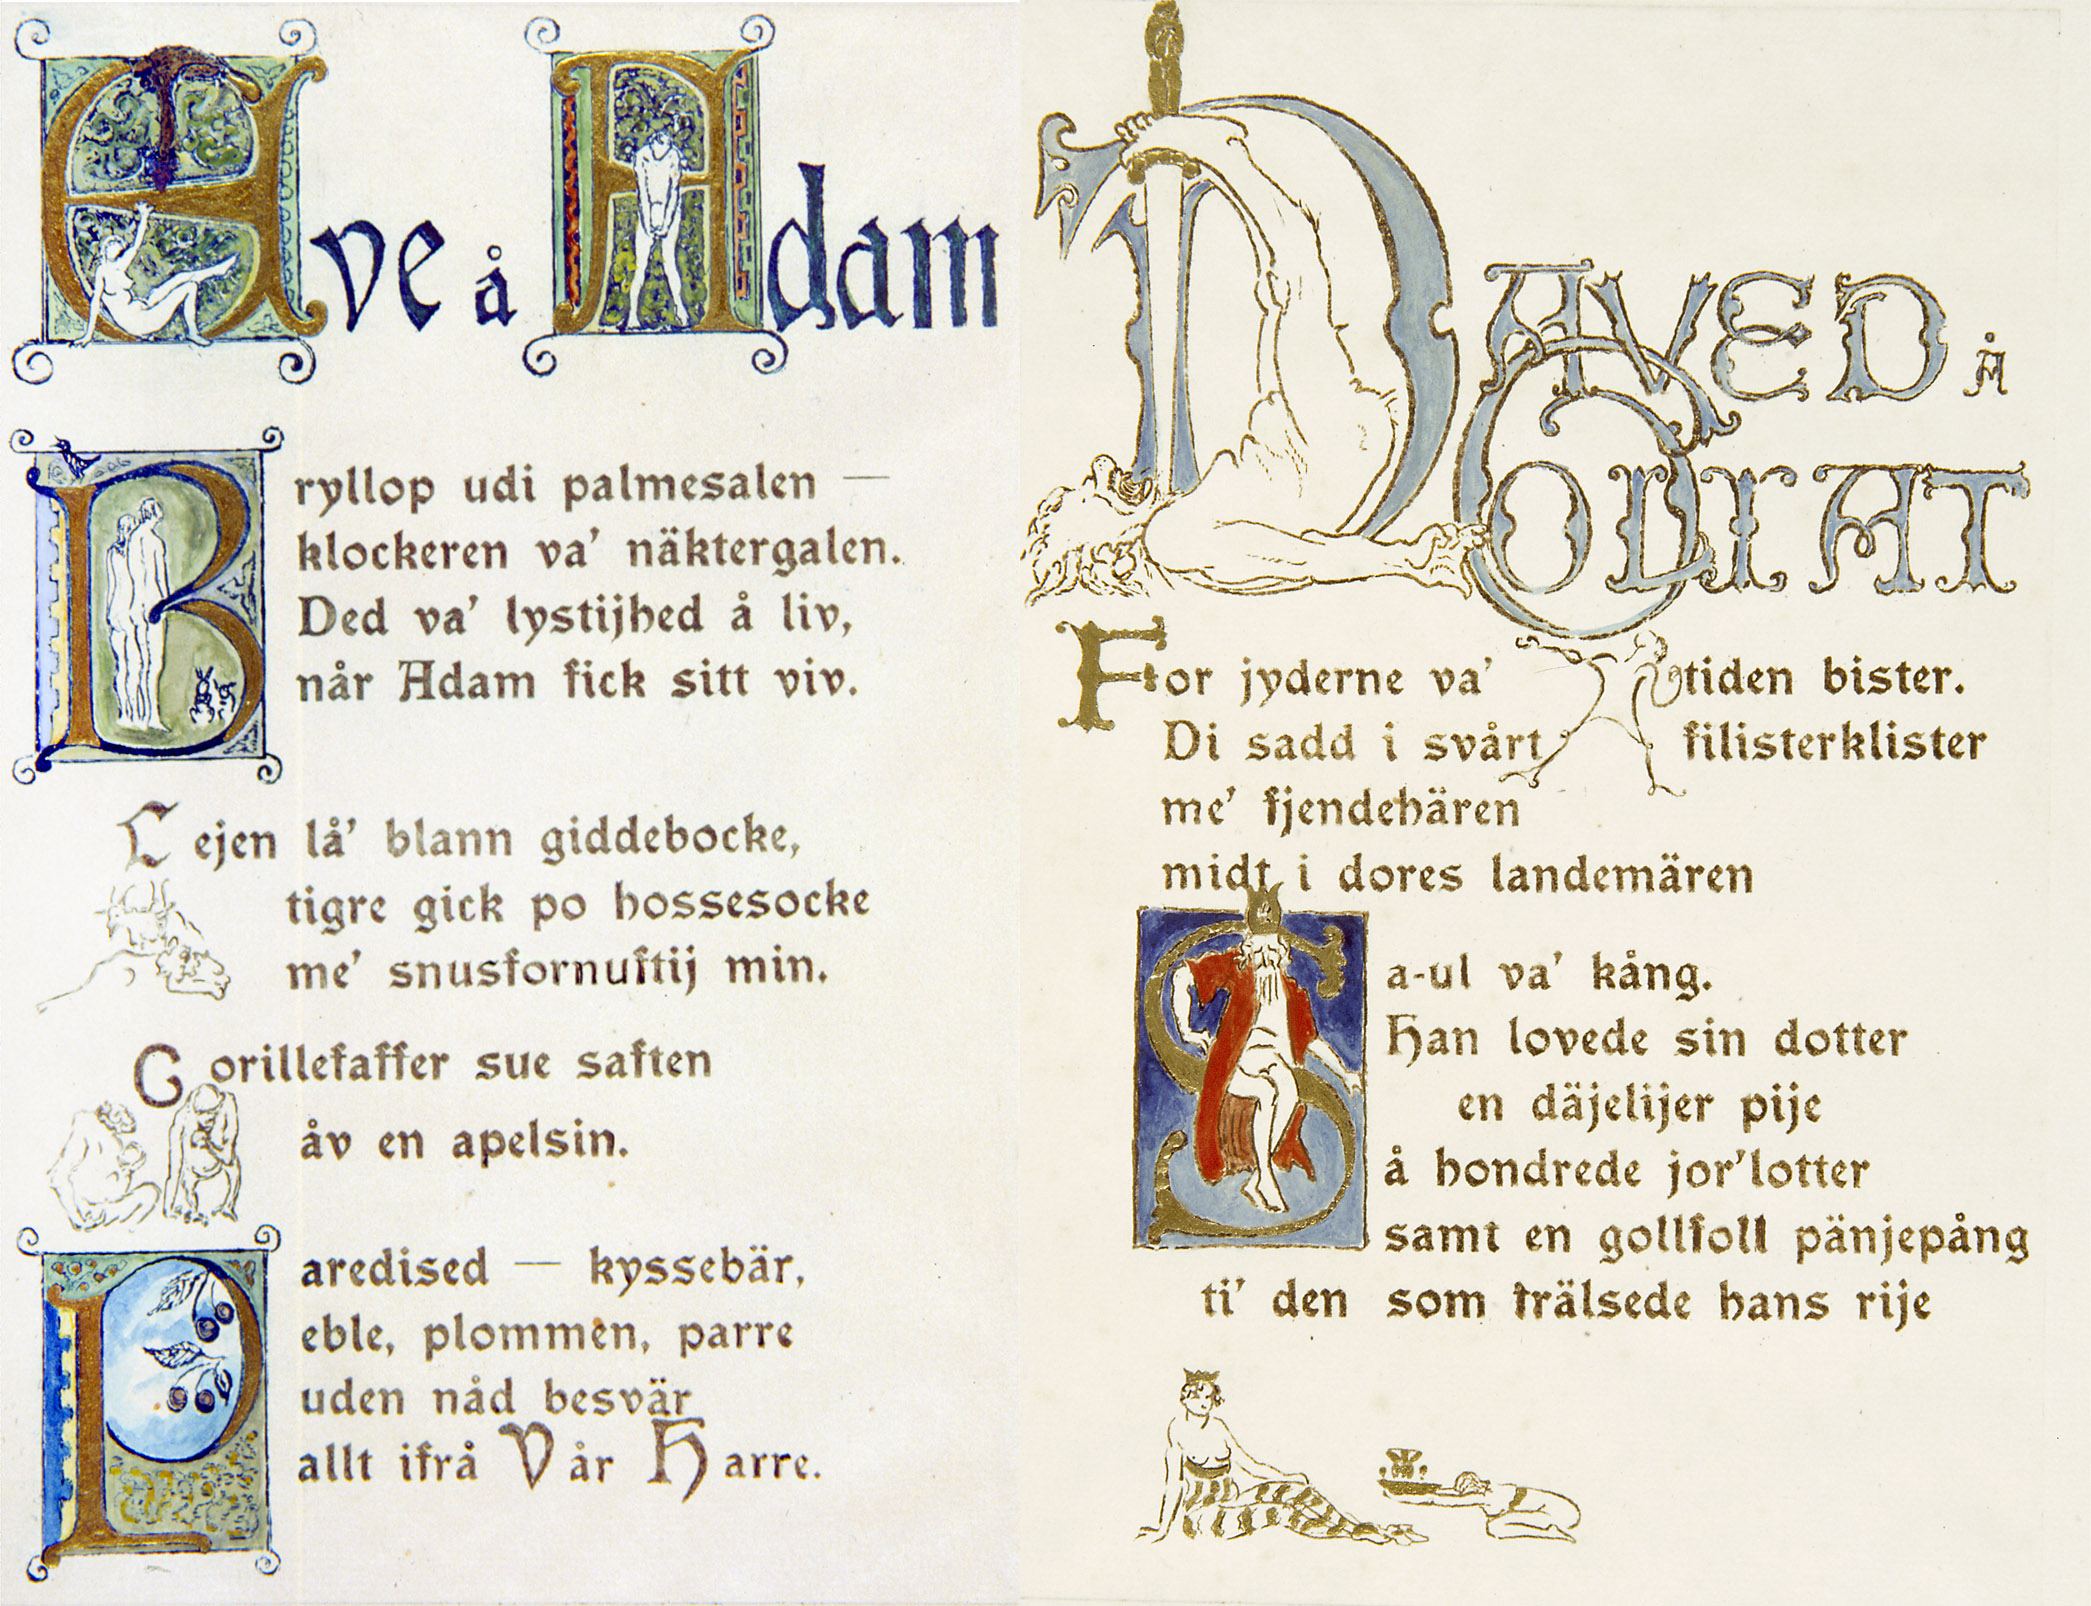 Eve å Adam
Bryllop udi palmesalen —
klockeren va' näktergalen.
Ded va' lystijhed å liv,
når Adam fick sitt viv.
Lejen lå' blann giddebocke,
tigre gick po hossesocke
me' snusfornuftij min.
Gorillefaffer sue saften
åv en apelsin.
Paredised — kyssebär,
eble, plommen, parre
uden nåd besvär
allt ifrå Vår Harre.
DAVED Å
GOLIAT
For jyderne va' tiden bister.
Di sadd i svårt filisterklister
me' fjendehären
midt i dores landemären
Sa-ul va' kång.
Han lovede sin dotter
en däjelijer pije
å hondrede jor'lotter
samt en gollfoll pänjepång
ti' den som frälsede hans rije